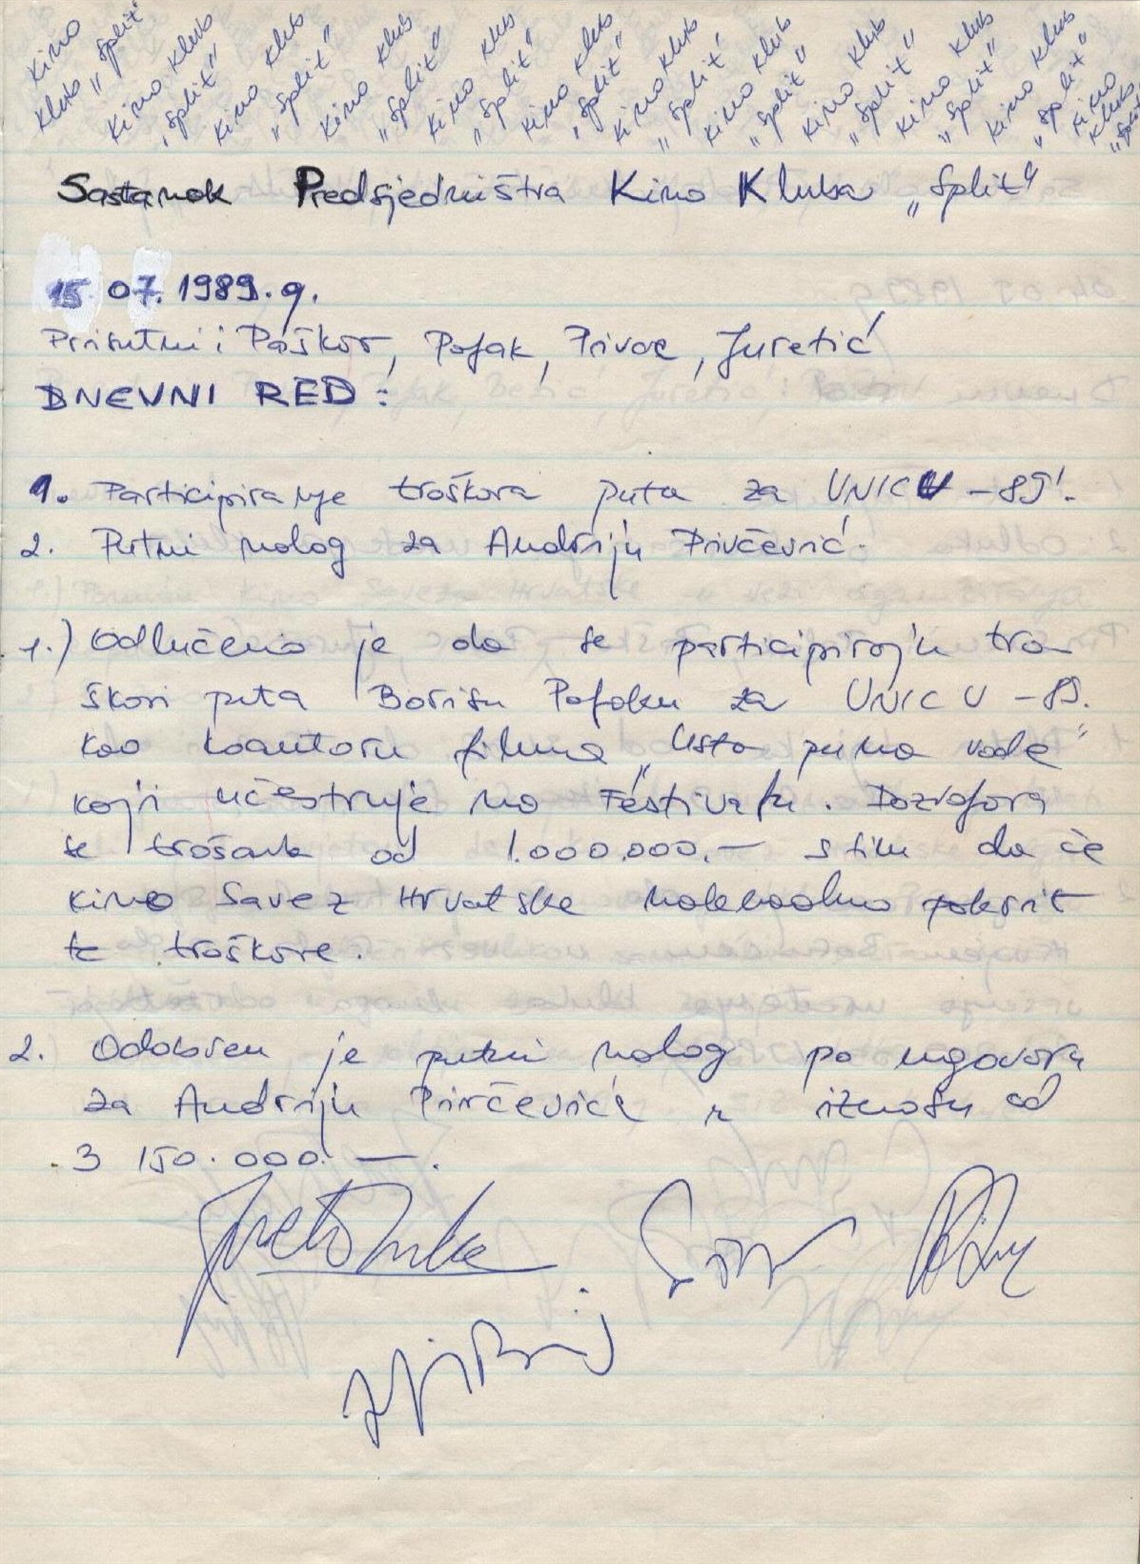 Kino Klub „Split" Kino Klub „Split" Kino Klub „Split" Kino Klub „Split" Kino Klub „Split" Kino Klub „Split" Kino Klub „Split" Kino Klub „Split" Kino Klub „Split" Kino Klub „Split" Kino Klub „Split" Kino Klub „Split"
Sastanak Predsjedništva Kino Kluba „Split"
15 07. 1989. g.
Prisutni: Paškov, Poljak, Pivac, Juretić
DNEVNI RED:
1. Participiranje troškova puta za UNICU - 89'.
2. Putni nalog za Andriju Pivčević.
1.) Odlučeno je da se participiraju tro
škovi puta Borisu Poljaku za UNICU - 89.
kao koautoru filma „Usta puna vode"
koji učestvuje na Festivalu. Dozvoljava
se trošak od 1.000.000.— s tim da će
kino Savez Hrvatske naknadno pokrit
te troškove.
2. Odobren je putni nalog po ugovoru
za Andriju Pivčevića u iznosu od
3 150.000. —.